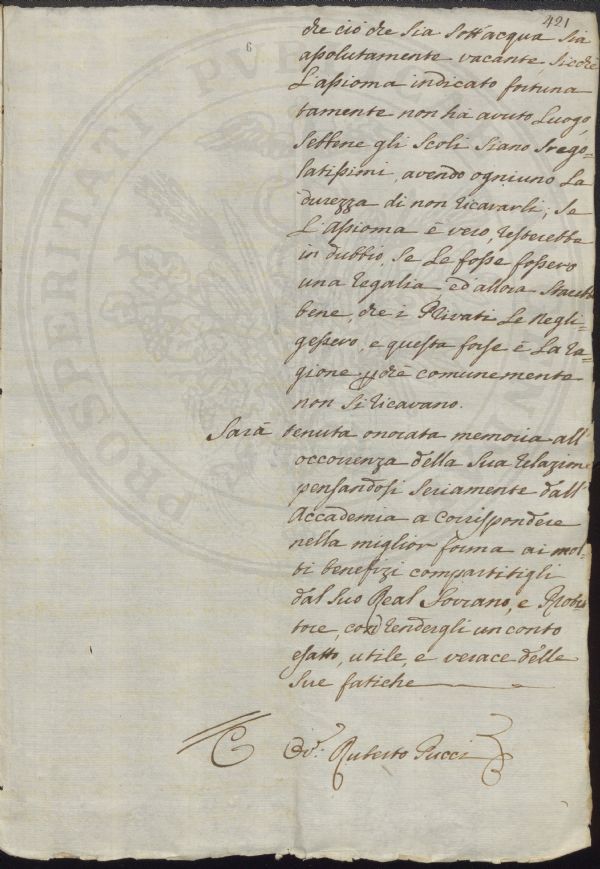 421
6
che ciò che sia sott'acqua sia
assolutamente vacante, sicchè
L'assioma indicato fortuna
tamente non ha avuto Luogo,
sebbene gli scoli siano srego-
latissimi, avendo ogniuno La
durezza di non ricavarli; se
L'assioma è vero, resterebbe
in dubbio, se Le fosse fossero
una regalia ed allora
bene, che i Privati Le negli-
gessero, e questa forse è La ra-
gione p.chè comunemente
non si ricavano.
Sarà tenuta onorata memoria all'
occorrenza della sua relazione
pensandosi seriamente dall'
Accademia a corrispondere
nella miglior forma ai mol-
ti benefizi compartitigli
dal suo Real Sovrano, e
tore, con rendergli un conto
esatto, utile, e verace delle
sue fatiche
Ruberto Pucci
PROSPERITATI PVBLICAE